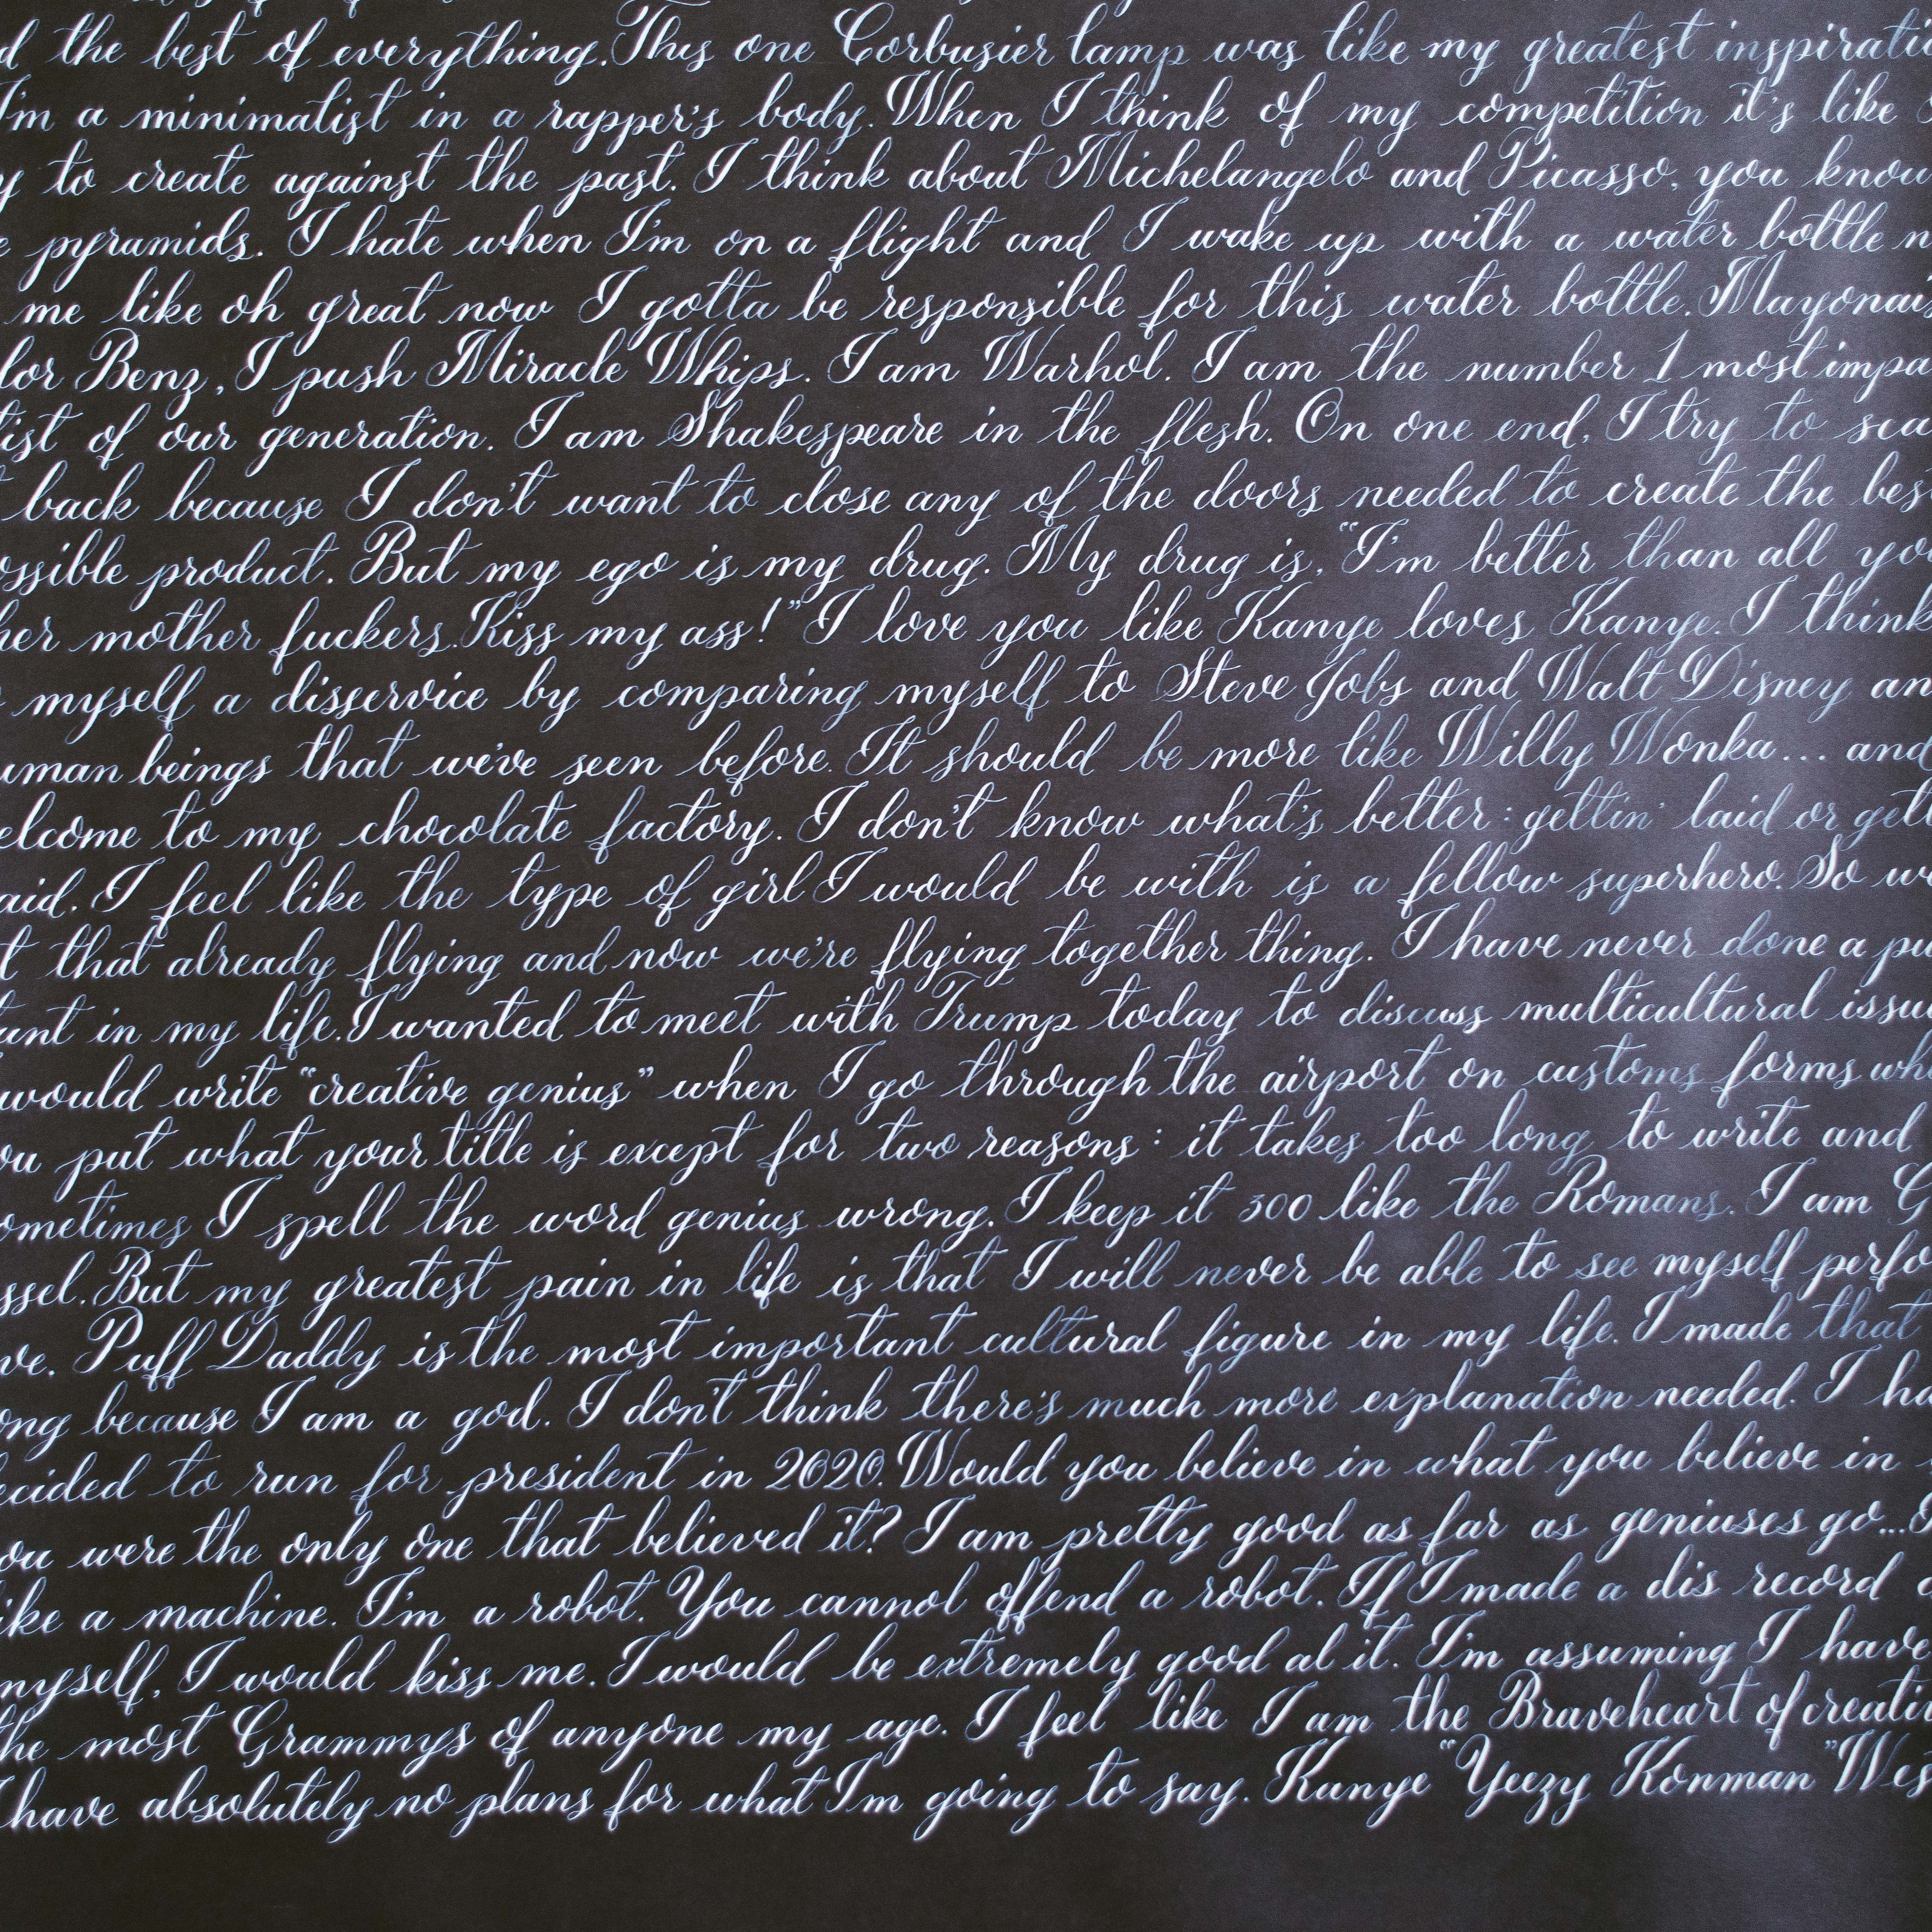 d the best of everything. This one Corbusier lamp was like my greatest inspirati
I'm a minimalist in a rapper's body. When I think of my competition it's like
y to create against the past. I think about Michelangelo and Picasso, you know
e pyramids. I hate when I'm on a flight and I wake up with a water bottle n
me like oh great now I gotta be responsible for this water bottle. Mayonais
lor Benz, I push Miracle Whips. I am Warhol. I am the number 1 most impa
tist of our generation. I am Shakespeare in the flesh. On one end, I try to sca
t back because I don't want to close any of the doors needed to create the bes
ossible product. But my ego is my drug. My drug is, "I'm better than all you
her mother fuckers. Kiss my ass!" I love you like Kanye loves Kanye. I think
myself a disservice by comparing myself to Steve Jobs and Walt Disney an
uman beings that we've seen before. It should be more like Willy Wonka... and
elcome to my chocolate factory. I don't know what's better: gettin' laid or gett
aid. I feel like the type of girl I would be with is a fellow superhero. So we
t that already flying and now we're flying together thing. I have never done a pu
tunt in my life. I wanted to meet with Trump today to discuss multicultural issu
would write "creative genius" when I go through the airport on customs forms whe
ou put what your title is except for two reasons: it takes too long to write and
ometimes I spell the word genius wrong. I keep it 300 like the Romans. I am G
ssel. But my greatest pain in life is that I will never be able to see myself perfo
ve. Puff Daddy is the most important cultural figure in my life. I made that
ong because I am a god. I don't think there's much more explanation needed. I ha
ecided to run for president in 2020. Would you believe in what you believe in
ou were the only one that believed it? I am pretty good as far as geniuses go...
ike a machine. I'm a robot. You cannot offend a robot. If I made a dis record
myself, I would kiss me. I would be extremely good at it. I'm assuming I have
the most Grammys of anyone my age. I feel like I am the Braveheart of creati
I have absolutely no plans for what I'm going to say. Kanye "Yeezy Konman" Wes